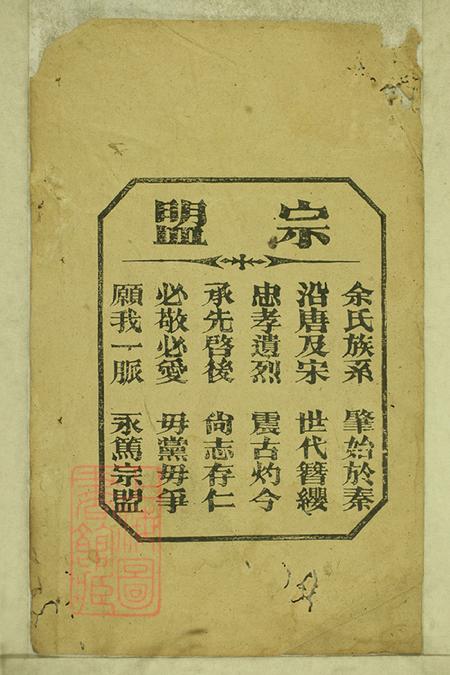 宗盟
余氏族系 肇始於秦
沿唐及宋 世代簪纓
忠孝遺烈 震古灼今
承先啓後 尚志存仁
必敬必愛 毋黨毋爭
願我一脈 永篤宗盟